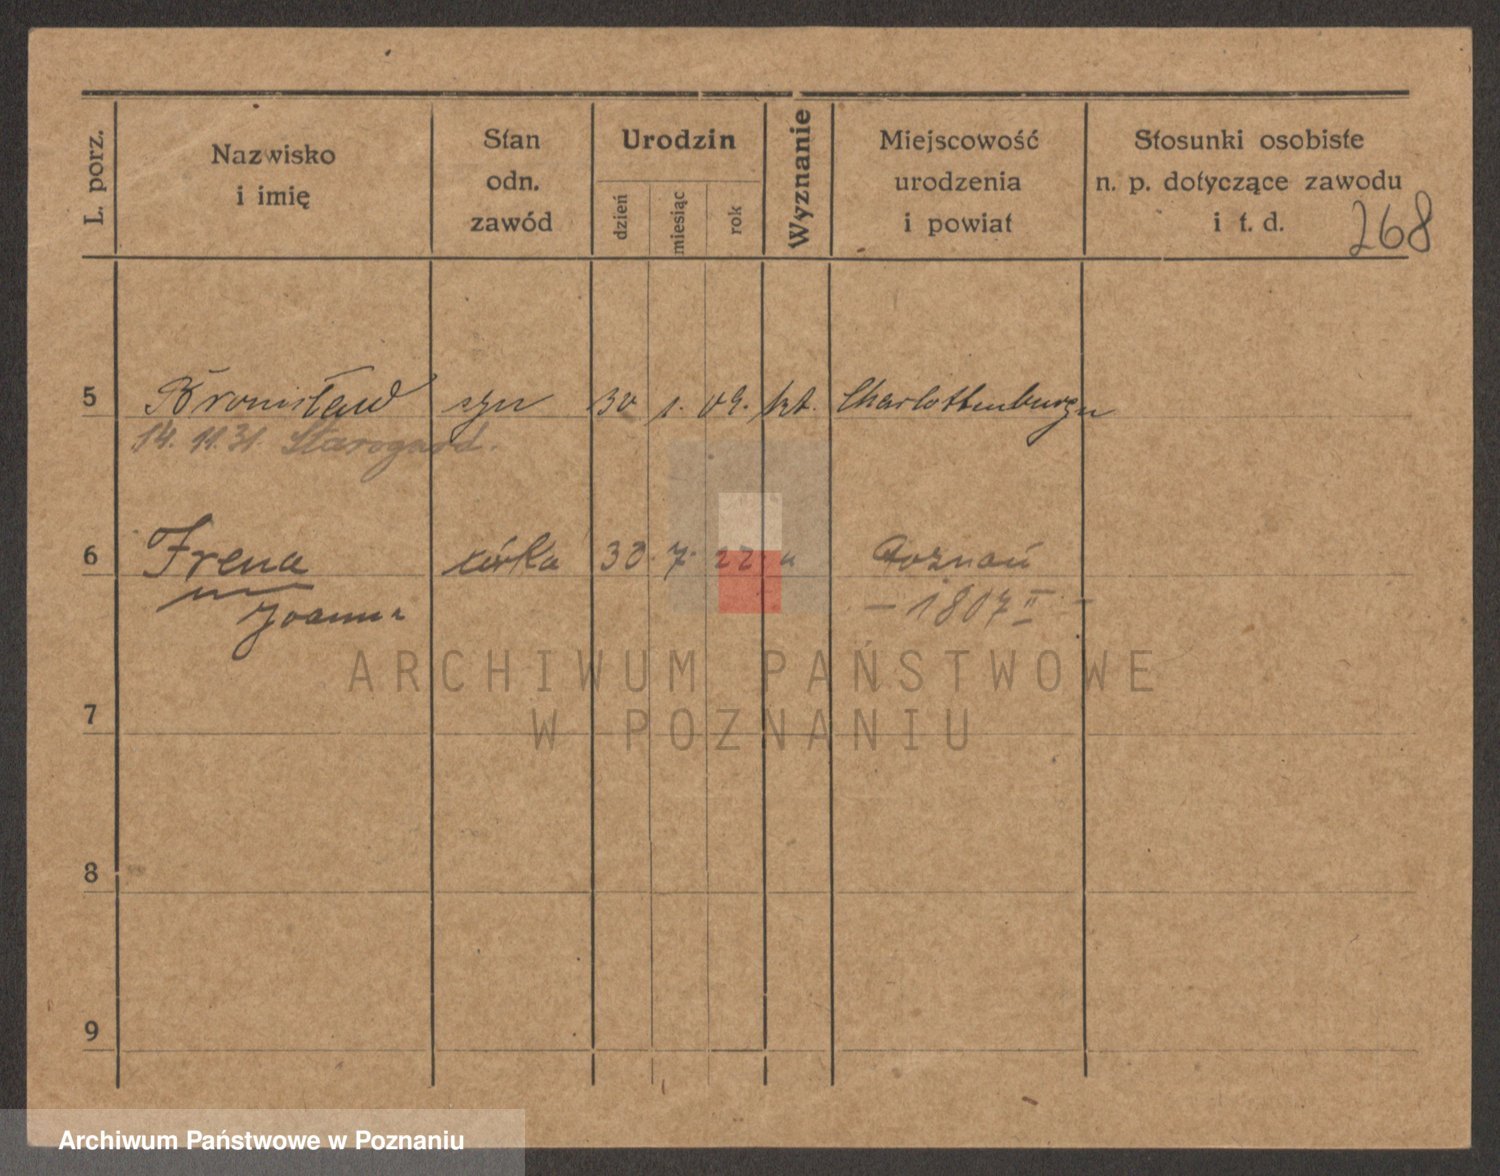 L. porz.
Nazwisko
i imię
Stan
odn.
zawód
Urodzin
dzień
miesiąc
rok
Wyznanie
Miejscowość
urodzenia
i powiat
Stosunki osobiste
n. p. dotyczące zawodu
i t. d.
268
5 Bronisław syn 30 1. 09. kt. Charlottenburgu
14. 11. 31. Starogard.
6 Irena córka 30. 7. 22. u Poznań
Joanna — 1807 II —
7
8
9
ARCHIWUM PAŃSTWOWE
W POZNANIU
Archiwum Państwowe w Poznaniu